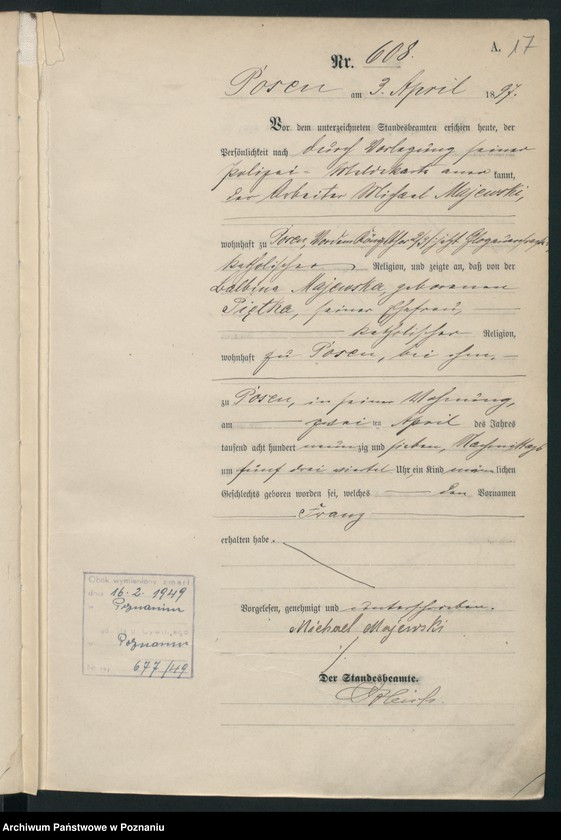 A. 17
Nr. 608.
Posen am 3. April 1897.
Vor dem unterzeichneten Standesbeamten erschien heute, der
Persönlichkeit nach durch Vorlegung seiner
Polizei-Meldekarte aner kannt,
der Arbeiter Michael Majewski,
wohnhaft zu Posen,
katholischer Religion, und zeigte an, daß von der
Balbina Majewska, geborenen
Piętka, seiner Ehefrau,
katholischer Religion,
wohnhaft zu Posen, bei ihm,
zu Posen, in seiner Wohnung,
am zwei ten April des Jahres
tausend acht hundert neun zig und sieben, Nachmittags
um fünf drei viertel Uhr ein Kind männ lichen
Geschlechts geboren worden sei, welches den Vornamen
Franz
erhalten habe.
Vorgelesen, genehmigt und unterschrieben.
Michael Majewski
Der Standesbeamte.
Obok wymieniony zmarł
dnia 16. 2. 1949
w Poznaniu
Poznaniu
677/49
Archiwum Państwowe w Poznaniu